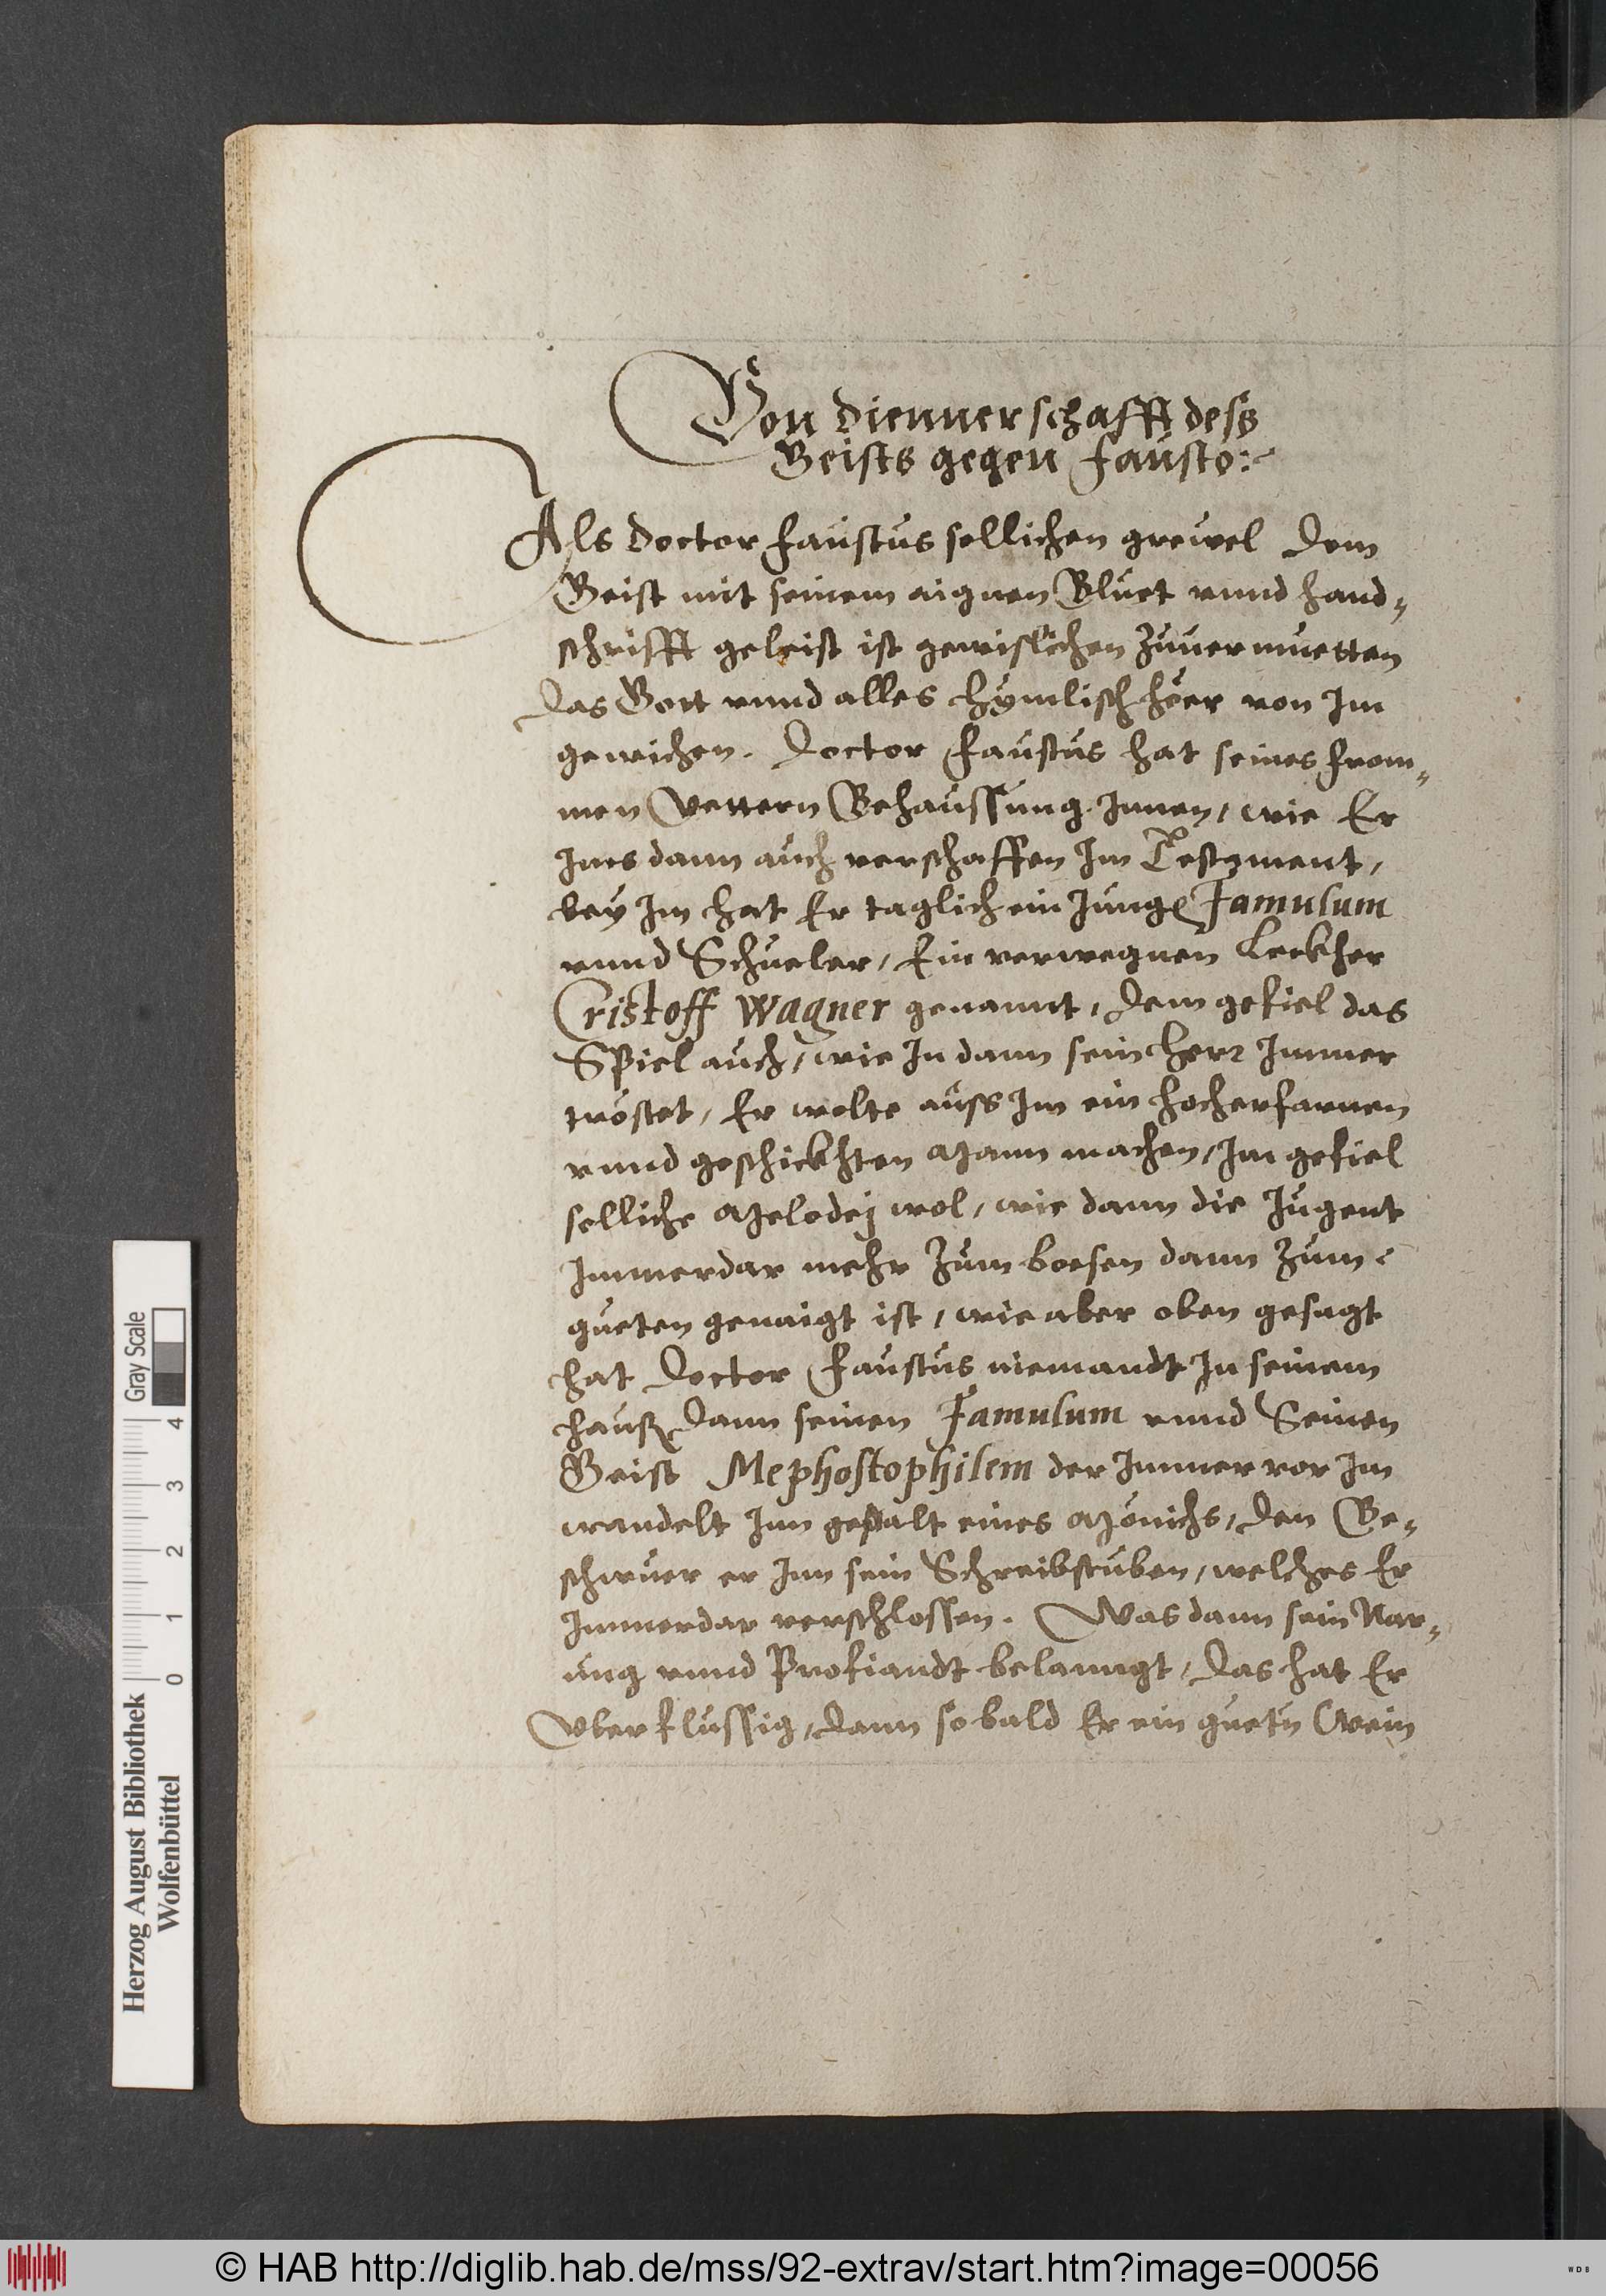 Von diennerschafft deß
Geists gegen Fausto:
Als Doctor Faustus sollichen grewel dem
Geist mit seinem aignen Bluet vnnd hand„
schrifft geleist ist gewislichen zuuermuetten
das Gott vnnd alles hymlisch höer von Im
gewichen. Doctor Faustus hat seines from„
men Vettern Behaussung Innen, wie Er
Ims dann auch verschaffen Im Testament,
bey Im hat Er taglich ein Jungen Famulum
vnnd Schueler, Ein verwegnen Leckher
Cristoff Wagner genannt, dem gefiel das
Spiel auch, wie In dann sein herr Immer
tröstet, Er wolte auss Im ein hocherfarnen
vnnd geschickhten Mann machen, Im gefiel
solliche Melodej wol, wie dann die Jugent
Immerdar mehr zum boesen dann zum
gueten genaigt ist, wie aber oben gesagt
hat Doctor Faustus niemandt In seinem
hauß dann seinen Famulum vnnd Seinen
Geist Mephostophilem der Immer vor Im
wandelt Inn gestalt eines Mönichs, den Be„
schwuer er Inn sein Schreibstuben, welches Er
Immerdar verschlossen. Was dann sein Nar„
ung vnnd Profiandt belanngt, das hat Er
Vberflussig, dann so bald Er ein guetn Wein
Herzog August Bibliothek
Wolfenbüttel
0 1 2 3 4
Gray Scale
© HAB http://diglib.hab.de/mss/92-extrav/start.htm?image=00056
WDB